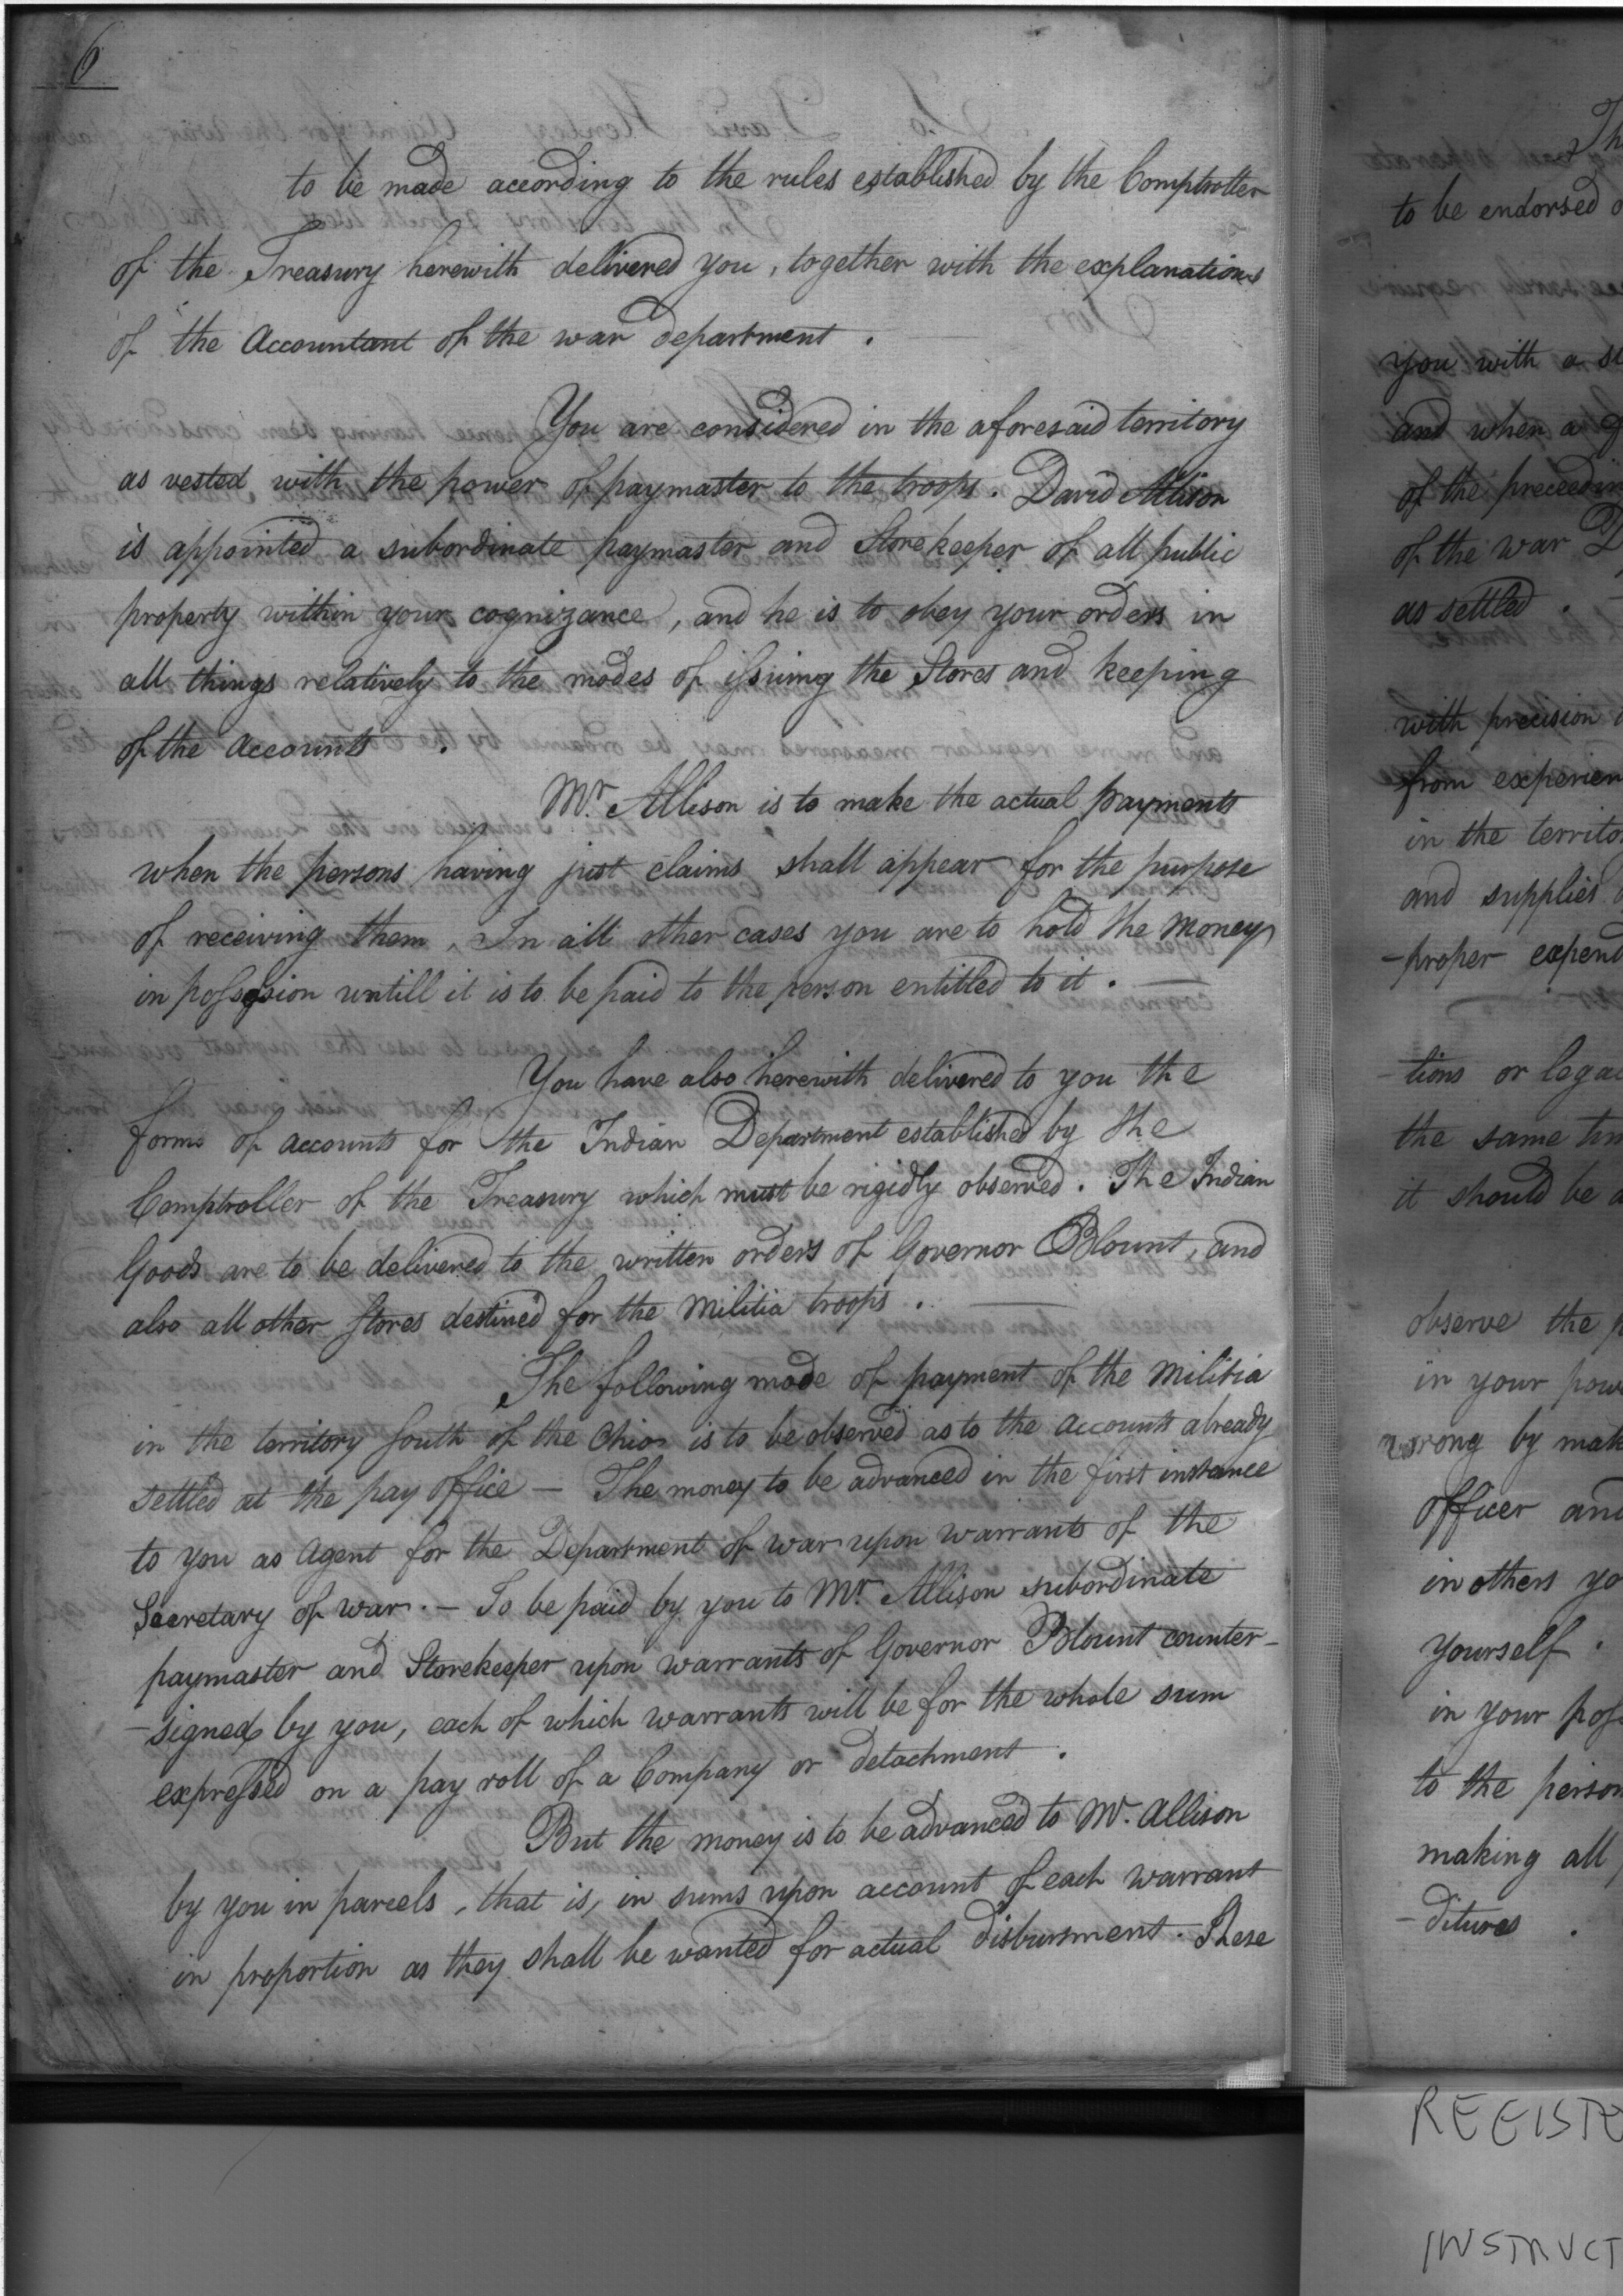 6
to be made according to the rules established by the Comptroller
of the Treasury herewith delivered you, together with the explanations
of the Accountant of the war department.
You are considered in the aforesaid territory
as vested with the power of paymaster to the troops. David Allison
is appointed a subordinate paymaster and Storekeeper of all public
property within your cognizance, and he is to obey your orders in
all things relatively to the modes of issuing the Stores and keeping
of the Accounts.
Mr. Allison is to make the actual payments
when the persons having just claims shall appear for the purpose
of receiving them, In all other cases you are to hold the money
in possession untill it is to be paid to the person entitled to it. —
You have also herewith delivered to you the
forms of accounts for the Indian Department established by the
Comptroller of the Treasury which must be rigidly observed. The Indian
Goods are to be delivered to the written orders of Governor Blount, and
also all other Stores destined for the Militia troops. —
The following mode of payment of the Militia
in the territory South of the Ohio is to be observed as to the accounts already
settled at the pay office — The money to be advanced in the first instance
to you as Agent for the Department of war upon warrants of the
Secretary of war. — To be paid by you to Mr. Allison subordinate
paymaster and Storekeeper upon warrants of Governor Blount counter-
-signed by you, each of which warrants will be for the whole sum
expressed on a pay roll of a Company or detachment.
But the money is to be advanced to Mr. Allison
by you in parcels, that is, in sums upon account of each warrant
in proportion as they shall be wanted for actual disbursment. These
Th
to be endorsed
you with a
and when a
of the preceedin
of the war D
as settled.
with precision
from experien
in the territo
and supplies
-proper expend
-tions or legal
the same tim
it should be
observe the p
in your pow
wrong by mak
officer and
in others yo
yourself.
in your poss
to the person
making all
-ditures.
REGISTE
INSTRUCT